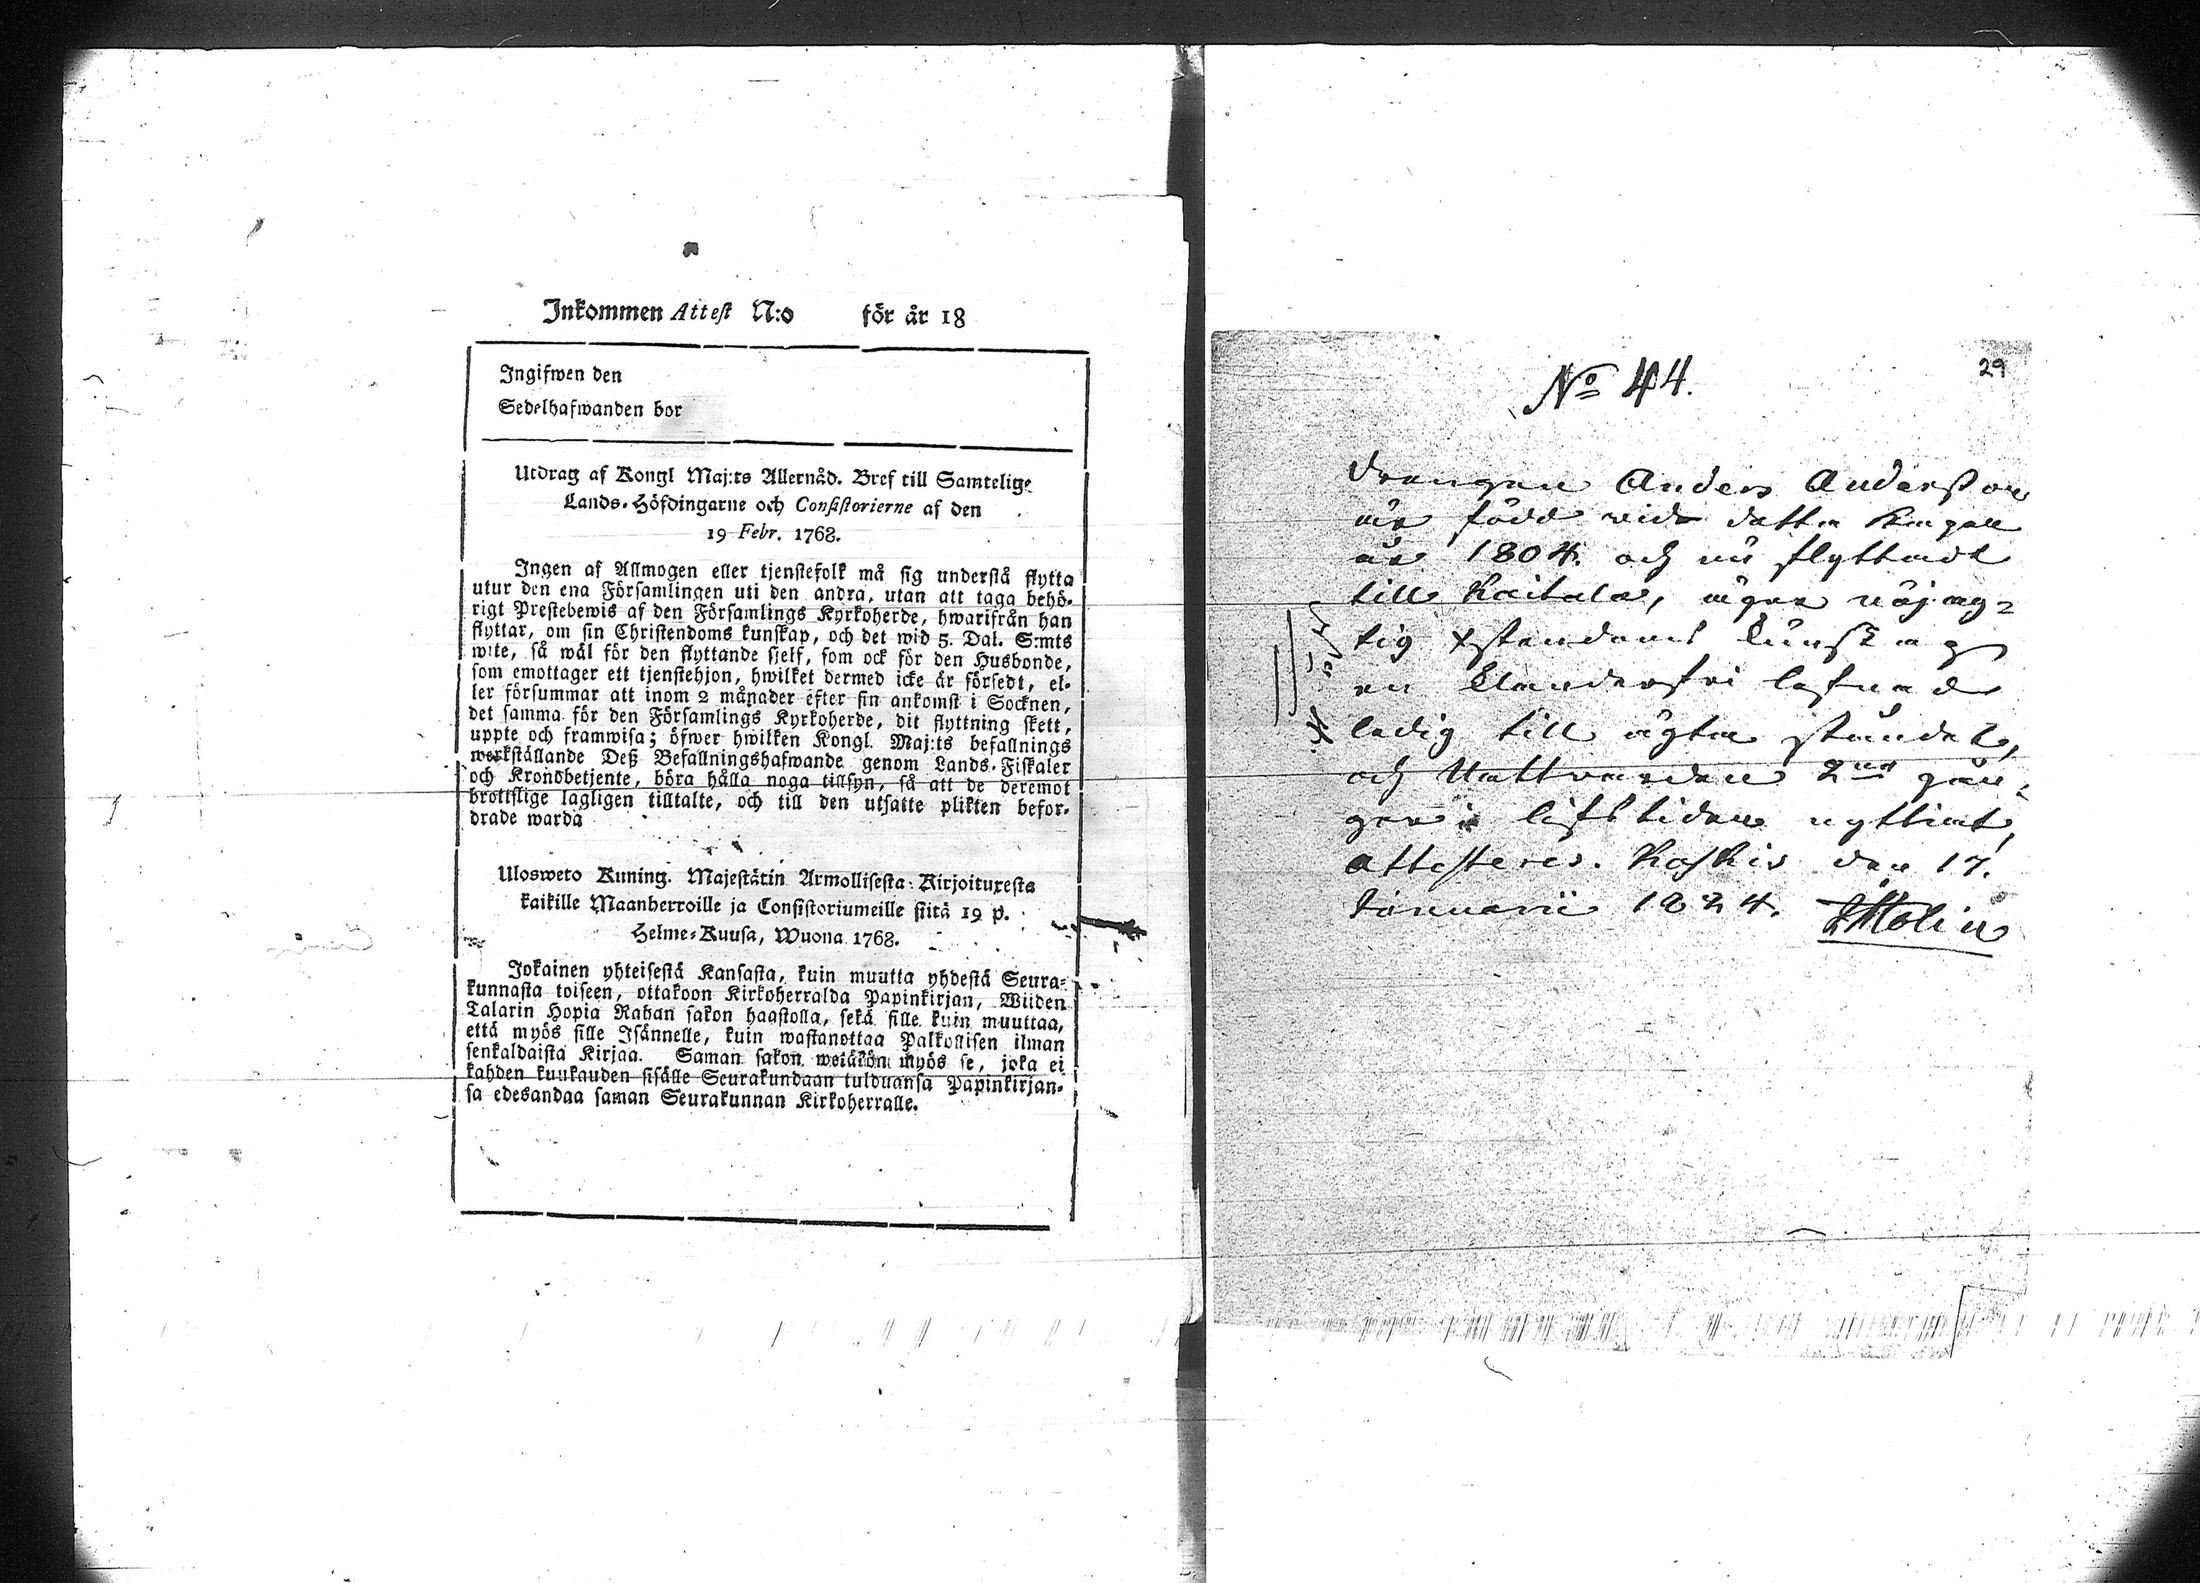 Inkommen Attest N:o för år 18
Ingifwen den
Sedelhafwanden bor
Utdrag af Kongl Maj:ts Allernåd. Bref till Samtelige
Lands-Höfdingarne och Consistorierne af den
19 Febr. 1768.
Ingen af Allmogen eller tjenstefolk må sig understå flytta
utur den ena Församlingen uti den andra, utan att taga behö-
rigt Prestebewis af den Församlings Kyrkoherde, hwarifrån han
flyttar, om sin Christendoms kunskap, och det wid 5. Dal. S:mts
wite, så wäl för den flyttande sjelf, som ock för den Husbonde,
som emottager ett tjenstehjon, hwilket dermed icke är försedt, el-
ler försummar att inom 2 månader efter sin ankomst i Socknen,
det samma för den Församlings Kyrkoherde, dit flyttning skett,
uppte och framwisa; öfwer hwilken Kongl. Maj:ts befallnings
werkställande Deß Befallningshafwande genom Lands-Fiskaler
och Kronobetjente, böra hålla noga tillsyn, så att de deremot
brottslige lagligen tilltalte, och till den utsatte plikten befor-
drade warda
Ulosweto Kuning. Majestätin Armollisesta Kirjoituxesta
kaikille Maanherroille ja Consistoriumeille siitä 19 p.
Helme-Kuusa, Wuona 1768.
Jokainen yhteisestä Kansasta, kuin muutta yhdestä Seura-
kunnasta toiseen, ottakoon Kirkoherralda Papinkirjan, Wiiden
Talarin Hopia Rahan sakon haastolla, sekä sille kuin muuttaa,
että myös sille Isännelle, kuin wastanottaa Palkollisen ilman
senkaldaista Kirjaa. Saman sakon wetäkön myös se, joka ei
kahden kuukauden sisälle Seurakundaan tulduansa Papinkirjan-
sa edesandaa saman Seurakunnan Kirkoherralle.
29
No 44.
Drengen Anders Andersson
är född wid detta Kapell
år 1804. och nu flyttande
till Kaitala, äger nöjag=
tig Xstendoms kunskap
en klanderfri lefnad
ledig till ägta ståndet,
och Nattvarden 2ne gån=
ger i lifstiden nyttiat,
attesteres. Koskis den 17.
Januarii 1824. Molin